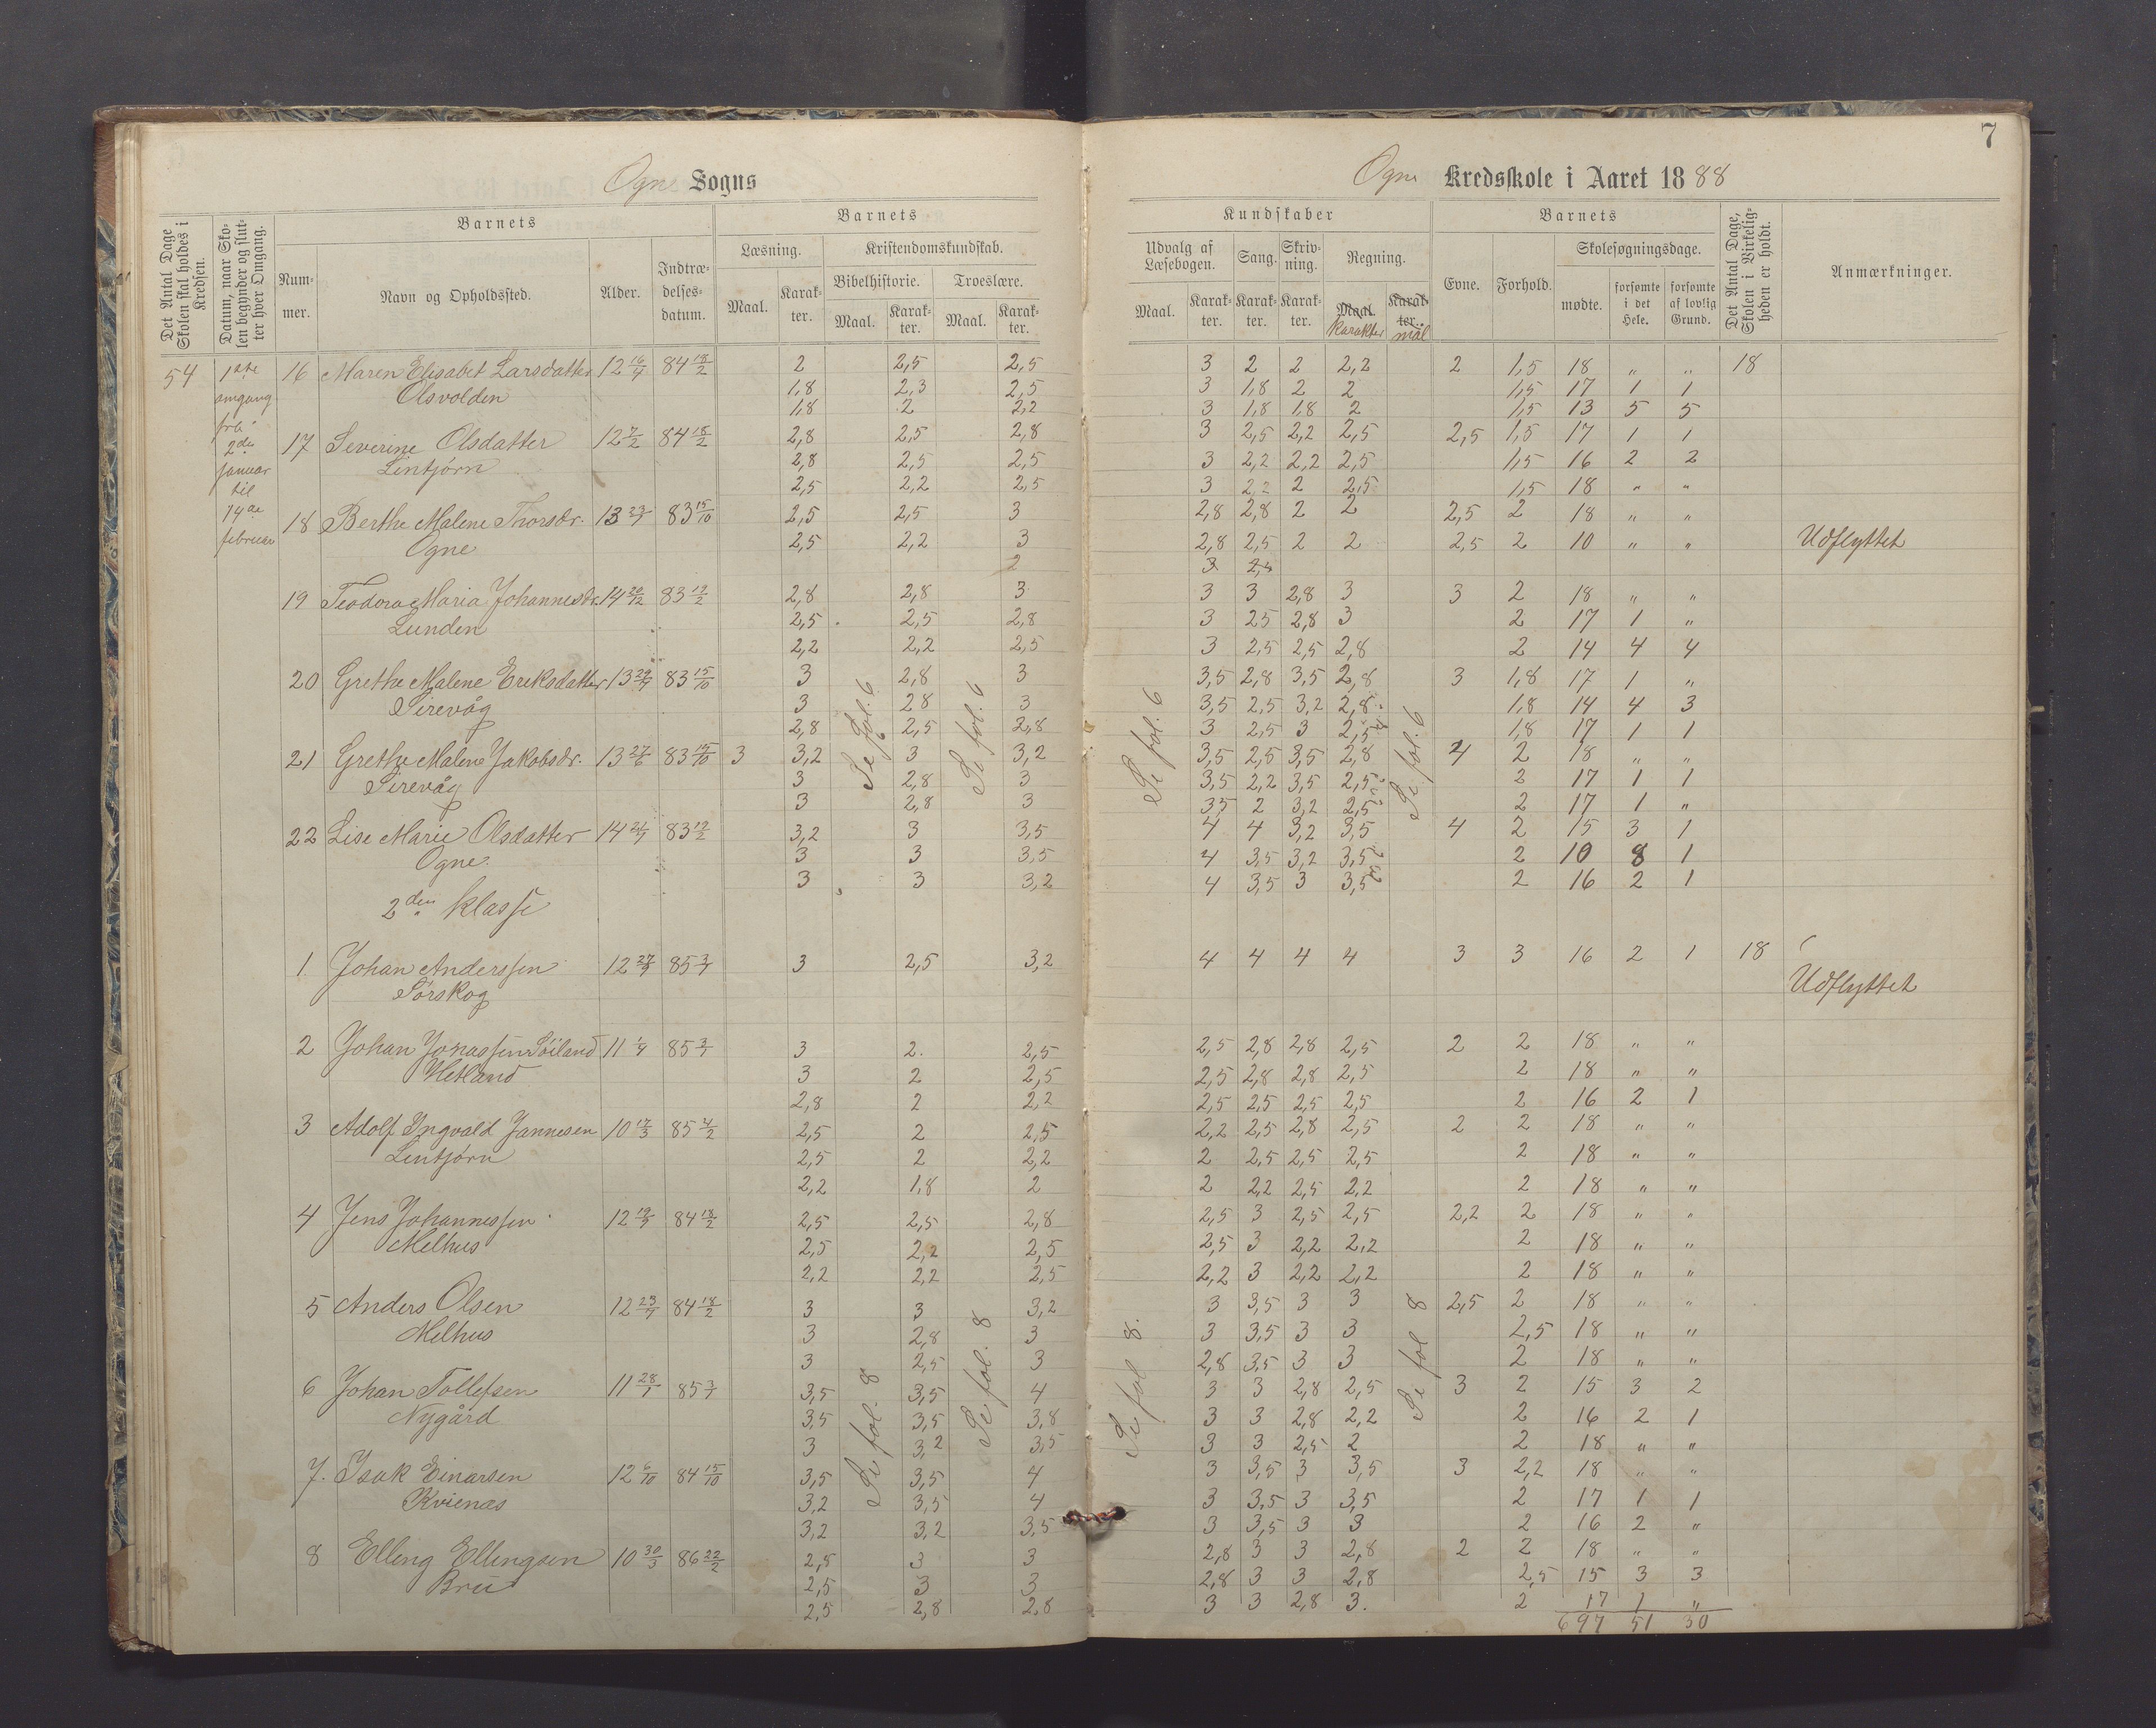 7
Ogne Sogns
Ogne Kredsskole i Aaret 1888
Det Antal Dage Skolen skal holdes i Kredsen.
Datum, naar Skolen begynder og slutter hver Omgang.
Barnets
Nummer.
Navn og Opholdssted.
Alder.
Indtrædelsesdatum.
Barnets
Læsning.
Kristendomskundskab.
Bibelhistorie.
Troeslære.
Maal.
Karakter.
Maal.
Karakter.
Maal.
Karakter.
Kundskaber
Udvalg af Læsebogen.
Sang.
Skrivning.
Regning.
Maal.
Karakter.
Karakter.
Karakter.
Maal. Karakter
Karakter. mål
Barnets
Evne.
Forhold.
Skolesøgningsdage.
mødte.
forsømte i det Hele.
forsømte af lovlig Grund.
Det Antal Dage, Skolen i Virkeligheden er holdt.
Anmærkninger.
54 1ste omgang fra 2den januar til 14de februar
16 Maren Elisabet Larsdatter 12 16/4 84 18/2 2 2,5 2,5 3 2 2 2,2 2 1,5 18 " " 18
Olsvolden 1,8 2,3 2,5 3 1,8 2 2 1,5 17 1 1
1,8 2 2,2 3 1,8 1,8 2 1,5 13 5 5
17 Severine Olsdatter 12 7/2 84 18/2 2,8 2,5 2,8 3 2,5 2,2 2,5 2,5 1,5 17 1 1
Lintjørn 2,8 2,5 2,5 3 2,2 2,2 2,5 1,5 16 2 2
2,5 2,2 2,5 3 2,2 2 2,5 1,5 18 " "
18 Berthe Malene Thorsdr. 13 83 15/10 2,5 2,5 3 2,8 2,8 2 2 2,5 2 18 " "
Ogne 2,5 2,2 3 2,8 2,5 2 2 2,5 2 10 " " Udflyttet
2 3
19 Teodora Maria Johannesdr. 14 20/12 83 12/2 2,8 2,8 3 3 3 2,8 3 3 2 18 " "
Lunden 2,5 2,5 2,8 3 25 2,8 3 2 17 1 "
2,2 2,2 2,5 3 2,5 2,5 2,8 2 14 4 4
20 Grethe Malene Eriksdatter 13 83 15/10 3 2,8 3 3,5 2,8 3,5 2,8 3 1,8 17 1 "
Sirevåg 3 28 3 3,5 2,5 3,2 2,8 1,8 14 4 3
2,8 2,5 2,8 3 2,5 3 2,5 1,8 17 1 1
21 Grethe Malene Jakobsdr. 13 27/6 83 15/10 3 3,2 3 3,2 3,5 2,5 3,5 2,8 4 2 18 " "
Sirevåg 3 2,8 3 3,5 2,2 3,5 2,5 2 17 1 1
3 2,8 3 3,5 2 3,2 2,5 2 17 1 "
22 Lise Marie Olsdatter 14 83 12/2 3,2 3 3,5 4 4 3,2 3,5 4 2 15 3 1
Ogne. 3 3 3,5 4 3,5 3,2 3,5 2 10 8 1
3 3 3,2 4 3,5 3 3,5 2 16 2 1
Se fol. 6
Se fol. 6
Se fol. 6
Se fol. 6
2den klasse
1 Johan Anderssen 12 85 3/1 3 2,5 3,2 4 4 4 4 3 3 16 2 1 18
Sørskog Udflyttet
2 Johan Jonassen Söiland 11 85 3/1 3 2. 2,5 2,5 2,8 2,8 2,5 2 2 18 " "
Hetland 3 2 2,5 2,5 2,8 2,8 2,5 2 18 " "
2,8 2 2,2 2,5 2,5 2,5 2,5 2 16 2 1
3 Adolf Ingvald Jannesen 10 17/3 85 4/2 2,5 2 2,5 2,2 2,5 2,8 2,5 2 2 18 " "
Lintjørn 2,5 2 2,2 2 2,5 2,5 2,5 2 18 " "
2,2 1,8 2 2 2,2 2,5 2,2 2 18 " "
4 Jens Johannessen 12 84 18/2 2,5 2,5 2,8 2,5 3 2,5 2,5 2,2 2 18 " "
Melhus 2,5 2,2 2,5 2,5 3 2,2 2,2 2 18 " "
2,2 2,2 2,5 2,2 3 2,2 2,2 2 18 " "
5 Anders Olsen 12 84 18/2 3 3 3,2 3 3,5 3 3 2,5 2 18 " "
Melhus 3 2,8 3 3 3,5 3 3 2,5 18 " "
3 2,5 3 2,8 3,5 3 3 2 18 " "
6 Johan Tollefsen 11 28/1 85 3/1 3,5 3,5 4 3 3 2,8 2,5 3 2 15 3 2
Nygård 3,5 3,5 3,8 3 3 2,8 2,2 2 16 2 1
3 3,2 3,5 3 3 2,5 2 2 18 " "
7. Isak Einarsen 12 6/10 84 15/10 3,5 3,5 4 3 3,5 3 3,5 3 2,2 18 " "
Kvienæs 3,2 3,5 4 3 3,5 3 3,5 2 17 1 1
3,2 3,2 3,5 3 3,5 3 3 2 16 2 "
8 Elling Ellingsen 10 30/3 86 22/2 2,5 3 3 2,8 3 3 2,8 2 2 18 " "
Bru 2,5 3 3 2,8 3 3 2,8 2,5 15 3 3
2,5 2,8 2,8 3 3 2,8 3. 2 17 1 "
Se fol. 8
Se fol. 8
Se fol 8.
Se fol 8
697 51 30